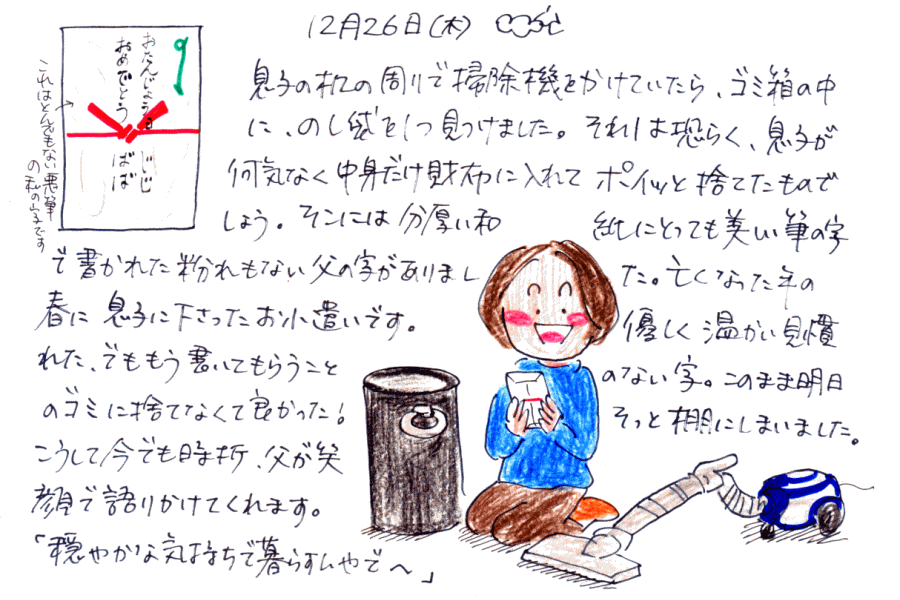 12月26日(木)
おたんじょう日
おめでとう
じじ
ばば
これはとんでもない悪筆
の私の字です
息子の机の周りで掃除機をかけていたら、ゴミ箱の中
に、のし袋を1つ見つけました。それは恐らく、息子が
何気なく中身だけ財布に入れて ポイッと捨てたもので
しょう。そこには分厚い和 紙にとっても美しい筆の字
で書かれた紛れもない父の字がありまし た。亡くなった年の
春に息子に下さったお小遣いです。 優しく温かい見慣
れた、でももう書いてもらうこと のない字。このまま明日
のゴミに捨てなくて良かった! そっと棚にしまいました。
こうして今でも時折、父が笑
顔で語りかけてくれます。
「穏やかな気持ちで暮らすんやで〜」